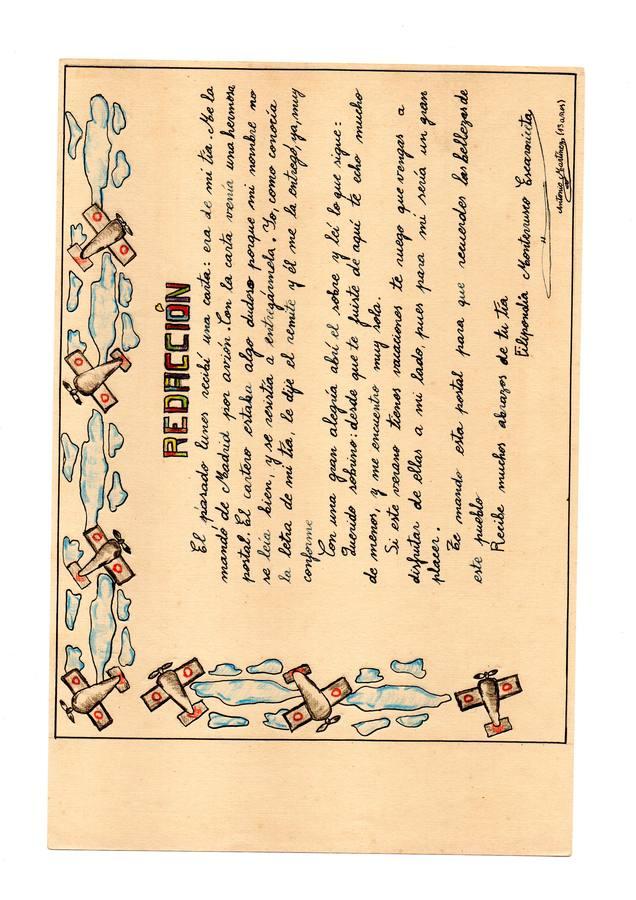 REDACCIÓN
El pasado lunes recibí una carta: era de mi tía. Me la
mandó de Madrid por avión. Con la carta venía una hermosa
postal. El cartero estaba algo dudoso porque mi nombre no
se leía bien, y se resistía a entregármela. Yo, como conocía
la letra de mi tía, le dije el remite y él me la entregó, ya, muy
conforme
Con una gran alegría abrí el sobre y leí lo que sigue:
Querido sobrino: desde que te fuiste de aquí te echo mucho
de menos, y me encuentro muy sola.
Si este verano tienes vacaciones te ruego que vengas a
disfrutar de ellas a mi lado, pues para mi sería un gran
placer.
Te mando esta postal para que recuerdes las bellezas de
este pueblo
Recibe muchos abrazos de tu tía
Filipondia Monterrusco Escaronieta
Antonio Martínez (13 años)